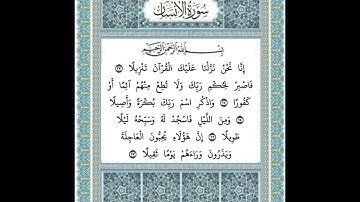 سورة الإنسان
بسم الله الرحمن الرحيم
إِنَّا نَحْنُ نَزَّلْنَا عَلَيْكَ الْقُرْآنَ تَنْزِيلًا ﴿٢٣﴾
فَاصْبِرْ لِحُكْمِ رَبِّكَ وَلَا تُطِعْ مِنْهُمْ آثِمًا أَوْ
كَفُورًا ﴿٢٤﴾ وَاذْكُرِ اسْمَ رَبِّكَ بُكْرَةً وَأَصِيلًا
﴿٢٥﴾ وَمِنَ اللَّيْلِ فَاسْجُدْ لَهُ وَسَبِّحْهُ لَيْلًا
طَوِيلًا ﴿٢٦﴾ إِنَّ هَؤُلَاءِ يُحِبُّونَ الْعَاجِلَةَ
وَيَذَرُونَ وَرَاءَهُمْ يَوْمًا ثَقِيلًا ﴿٢٧﴾